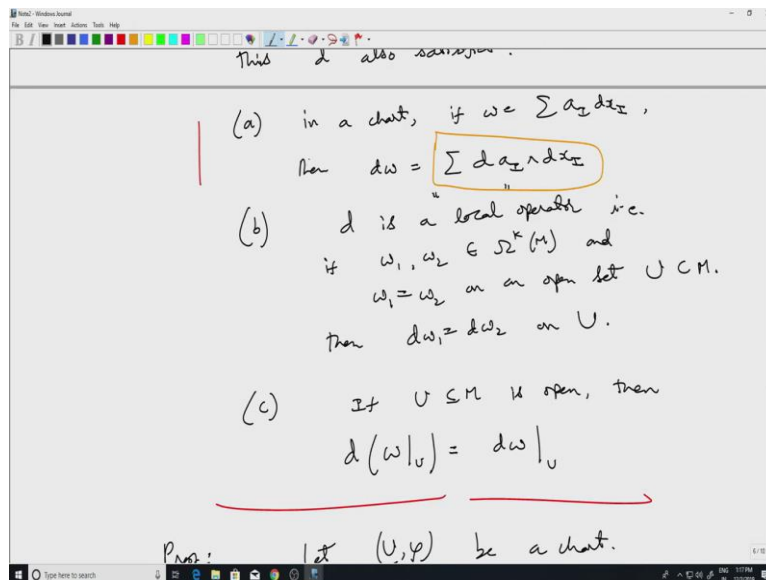 Note2 - Windows Journal
File Edit View Insert Actions Tools Help
this d also satisfies.
(a) in a chart, if ω = ∑ a_I dx_I,
then dω = ∑ d a_I ∧ dx_I
(b) d is a "local operator" i.e.
if ω₁, ω₂ ∈ Ω^k(M) and
ω₁ = ω₂ on an open set U ⊂ M.
then dω₁ = dω₂ on U.
(c) If U ⊆ M is open, then
d(ω|_U) = dω|_U
Proof: Let (U, φ) be a chart.
6 / 10
Type here to search
ENG 3:17 PM
IN